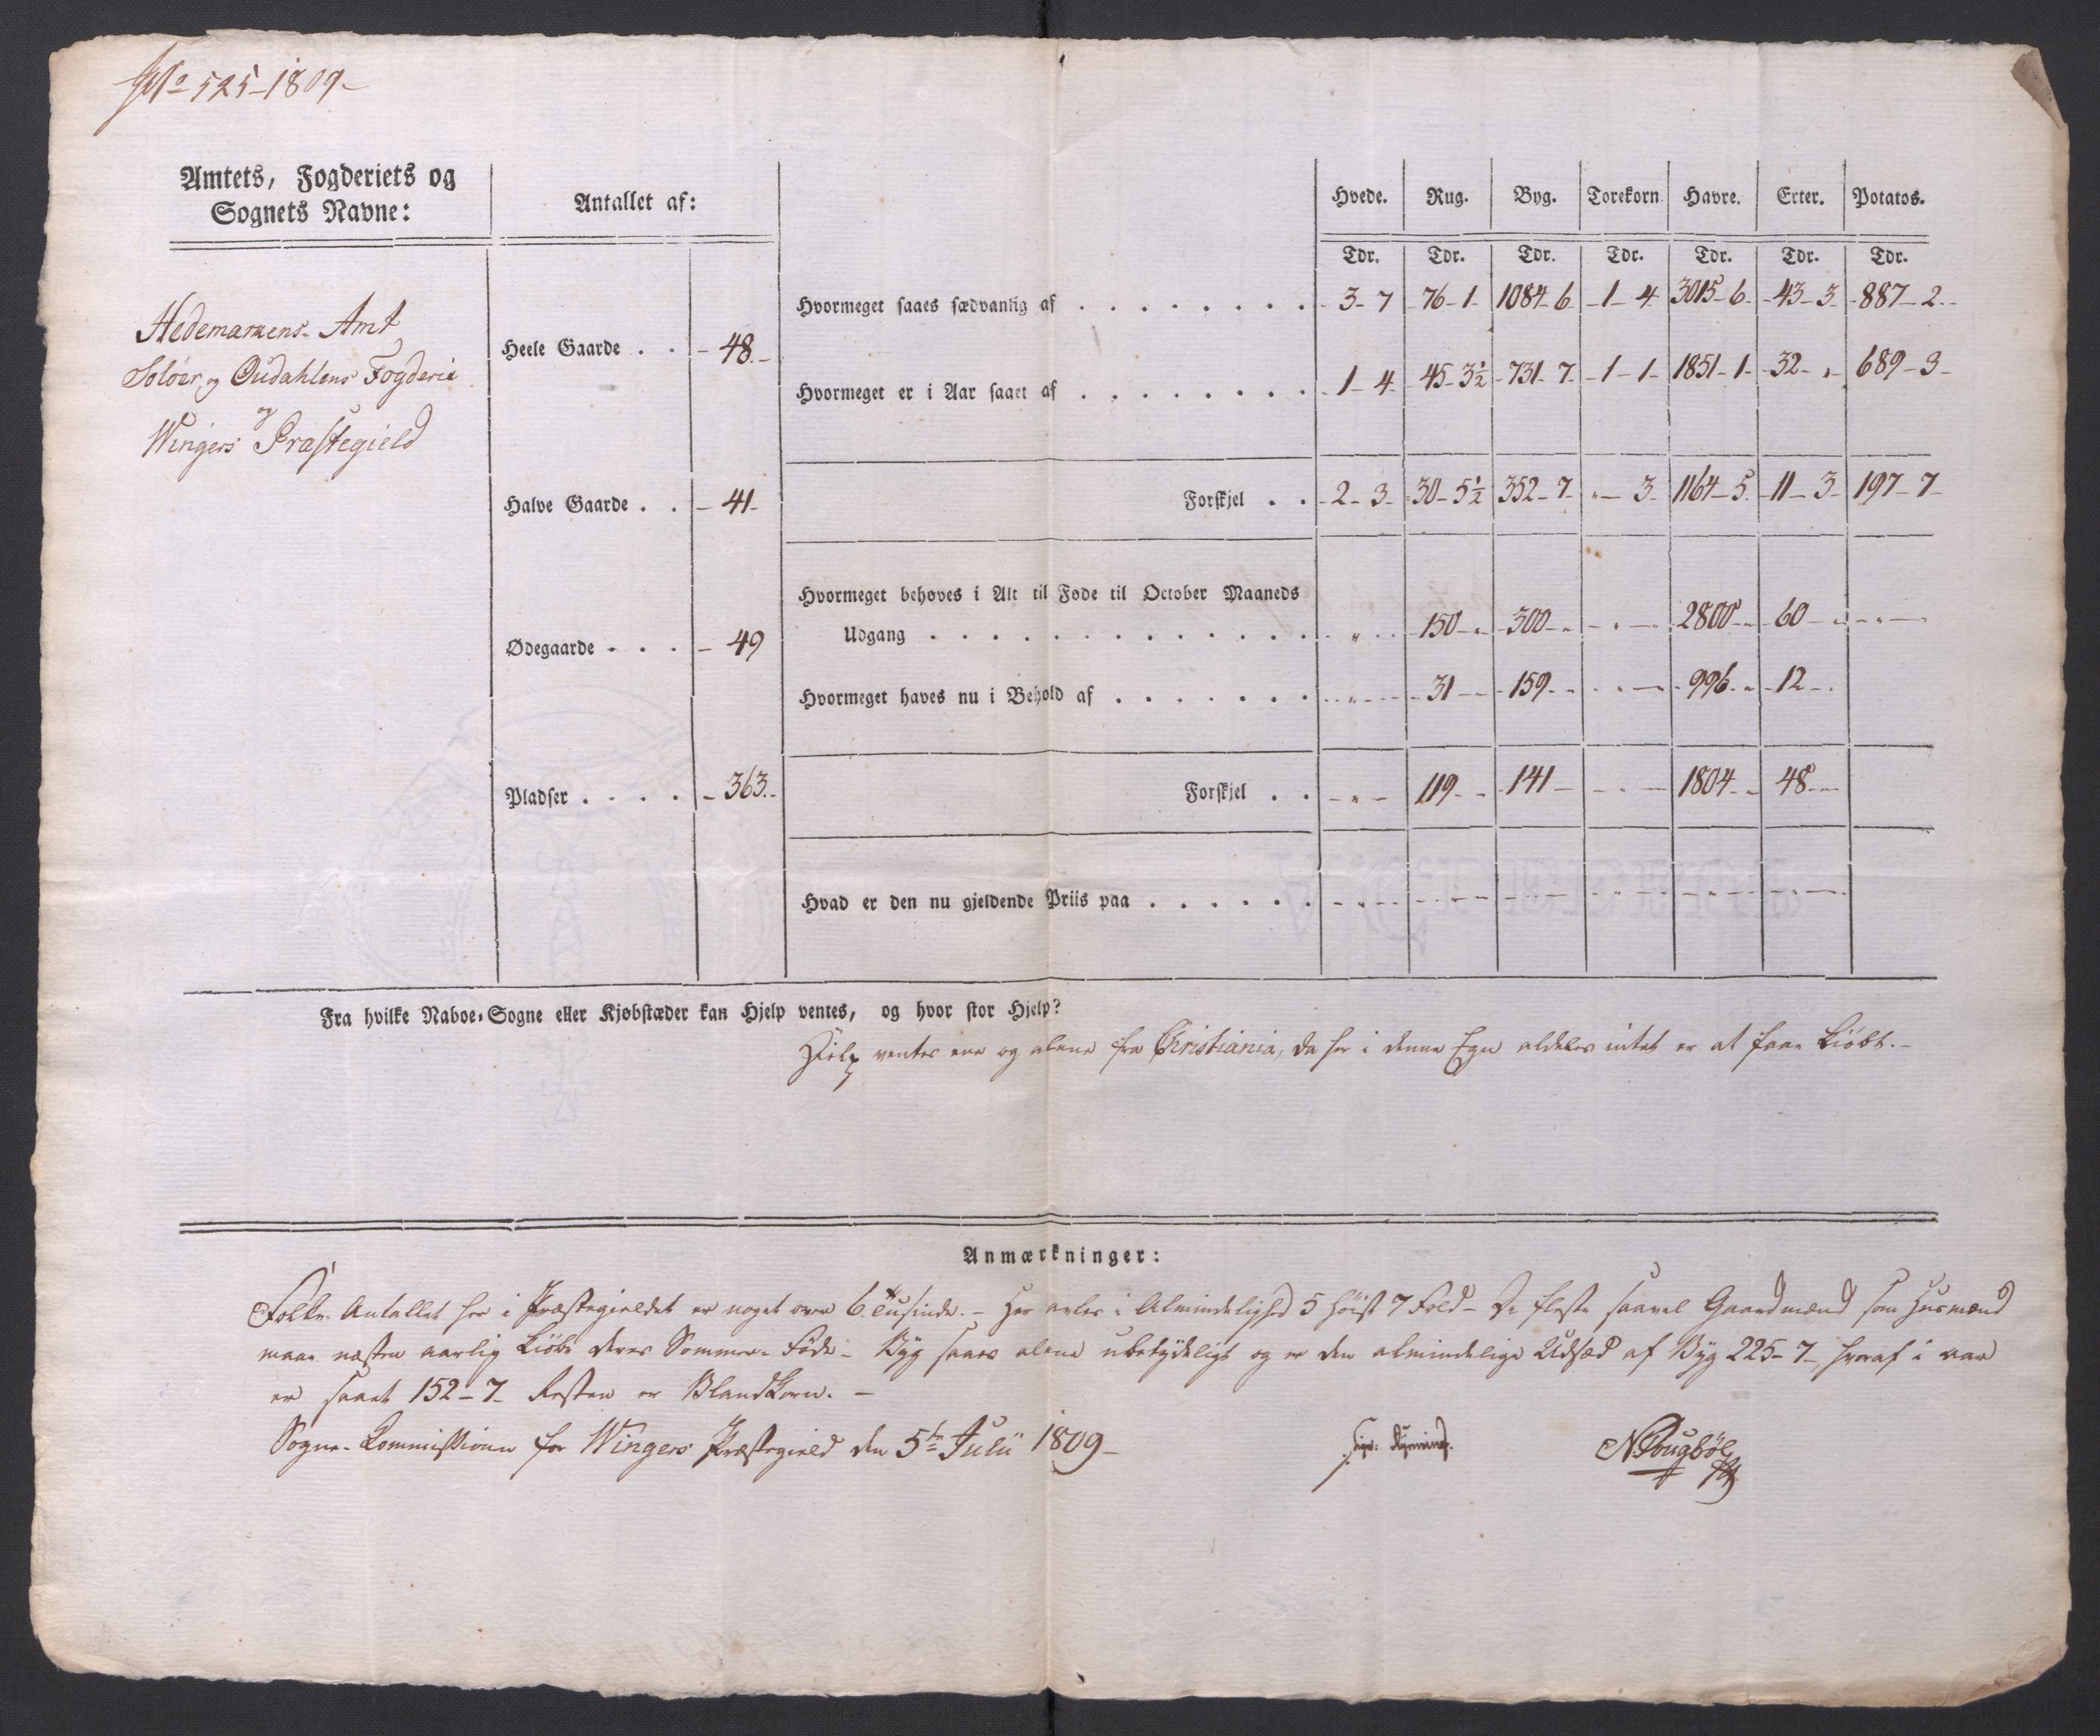 No 525-1809-
Amtets, Fogderiets og
Sognets Navne:
Antallet af:
Hvede. Rug. Byg. Torekorn Havre. Erter. Potatos.
Tdr. Tdr. Tdr. Tdr. Tdr. Tdr. Tdr.
Hedemarkens Amt
Soløer og Oudahlens Fogderie
og
Wingers Præstegield
Heele Gaarde . . - 48.-
Halve Gaarde . . - 41-
Ødegaarde . . . - 49
Pladser . . . . - 363.-
Hvormeget saaes sædvanlig af . . . . . . . . 3-7 76-1- 1084-6 -1-4 3015-6- -43-3 -887-2-
Hvormeget er i Aar saaet af . . . . . . . . 1-4 45-3½ 731-7 -1-1- 1851-1- -32-„- 689-3-
Forskjel . . 2-3- 30-5½ 352-7 „-3 1164-5 -11-3 197-7-
Hvormeget behøves i Alt til Føde til October Maaneds
Udgang . . . . . . . . . . . . . „ 150-„ 300-„ -„- 2800-„ 60-„ -„-
Hvormeget haves nu i Behold af . . . . . . . -„- 31-- 159-„ -„- 996-„ 12-„
Forskjel . . -„- 119-„ 141- -„- 1804-„ 48-„
Hvad er den nu gjeldende Priis paa . . . . . . -„- -„- -„- -„- -„- -„-
Fra hvilke Naboe-Sogne eller Kjøbstæder kan Hjelp ventes, og hvor stor Hjelp?
Hielp ventes ene og alene fra Christiania, da her i denne Egn aldeles intet er at faae kiøbt.-
Anmærkninger:
Folke-Antallet her i Præstegieldet er noget over 6 tusinde.- Her avles i Almindelighed 5 høist 7 Fold- De fleste saavel Gaardmænd som Husmænd
maae næsten aarlig kiøbe deres Sommer-Føde- Byg saaes alene ubetydeligt og er den almindelige Udsæd af Byg 225-7- hvoraf i aar
er saaet 152-7- Resten er Blandkorn.-
Sogne-Commissionen for Wingers Præstegield den 5te Julii 1809-
N. Dougbøl